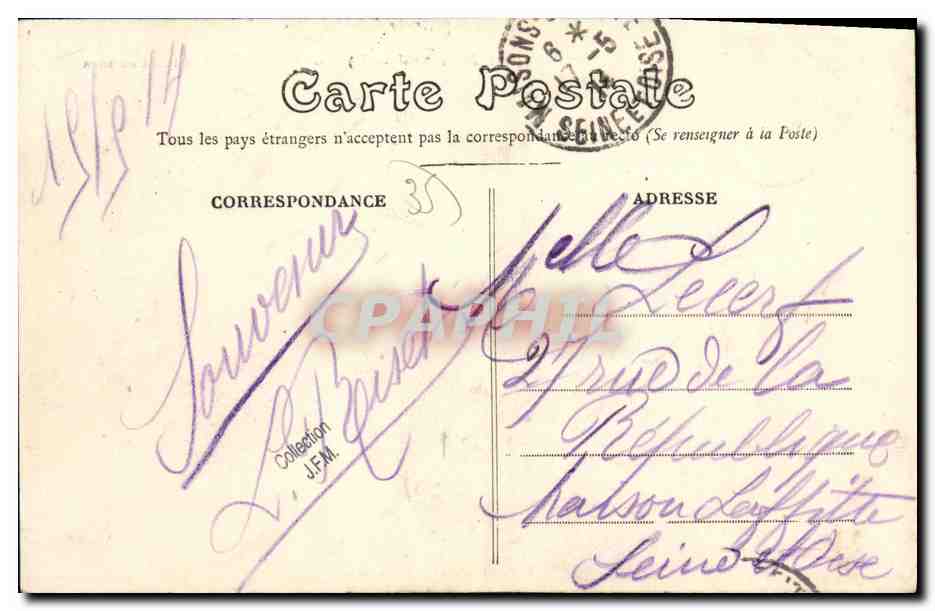 19/9 14
Carte Postale
Tous les pays étrangers n'acceptent pas la correspondance au recto (Se renseigner à la Poste)
CORRESPONDANCE
35
Souvenir
L. Boisert
Collection
J.F.M.
ADRESSE
Melle
M. Lecerf
27 rue de la
République
Maison Laffitte
Seine et Oise
SEINE
CPAPHIL